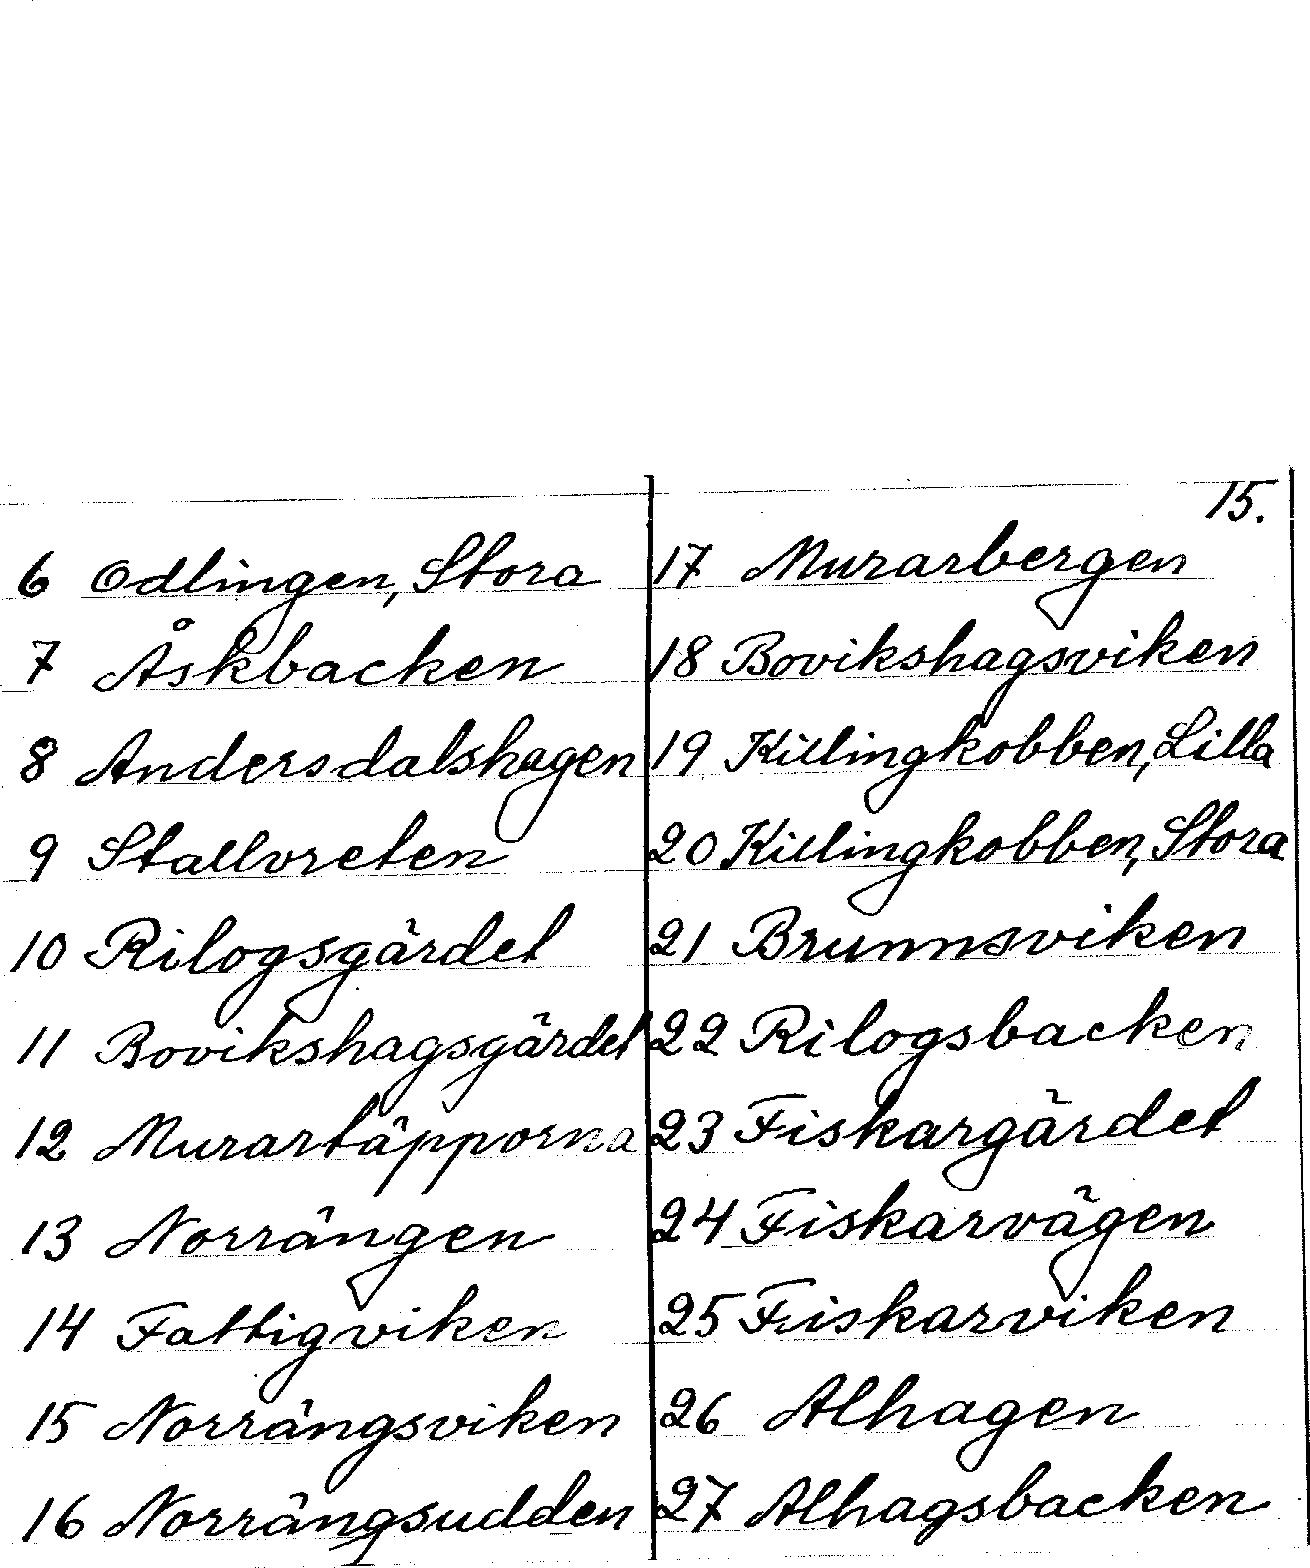 15.
6 Odlingen, Stora
7 Åskbacken
8 Andersdalshagen
9 Stallvreten
10 Rilogsgärdet
11 Bovikshagsgärdet
12 Murartäpporna
13 Norrängen
14 Fattigviken
15 Norrängsviken
16 Norrängsudden
17 Murarbergen
18 Bovikshagsviken
19 Killingkobben, Lilla
20 Killingkobben, Stora
21 Brunnsviken
22 Rilogsbacken
23 Fiskargärdet
24 Fiskarvägen
25 Fiskarviken
26 Alhagen
27 Alhagsbacken